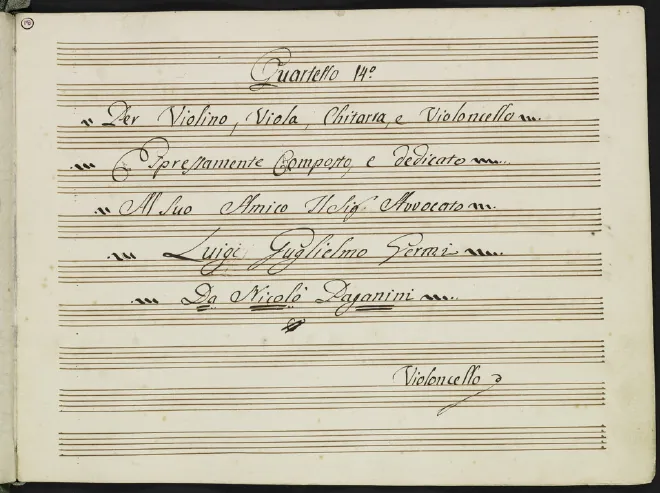 Quartetto 14º
Per Violino, Viola, Chitarra, e Violoncello
Espressamente Composto, e dedicato
Al Suo Amico Il Sigr Avvocato
Luigi Guglielmo Germi
Da Nicolò Paganini
Violoncello